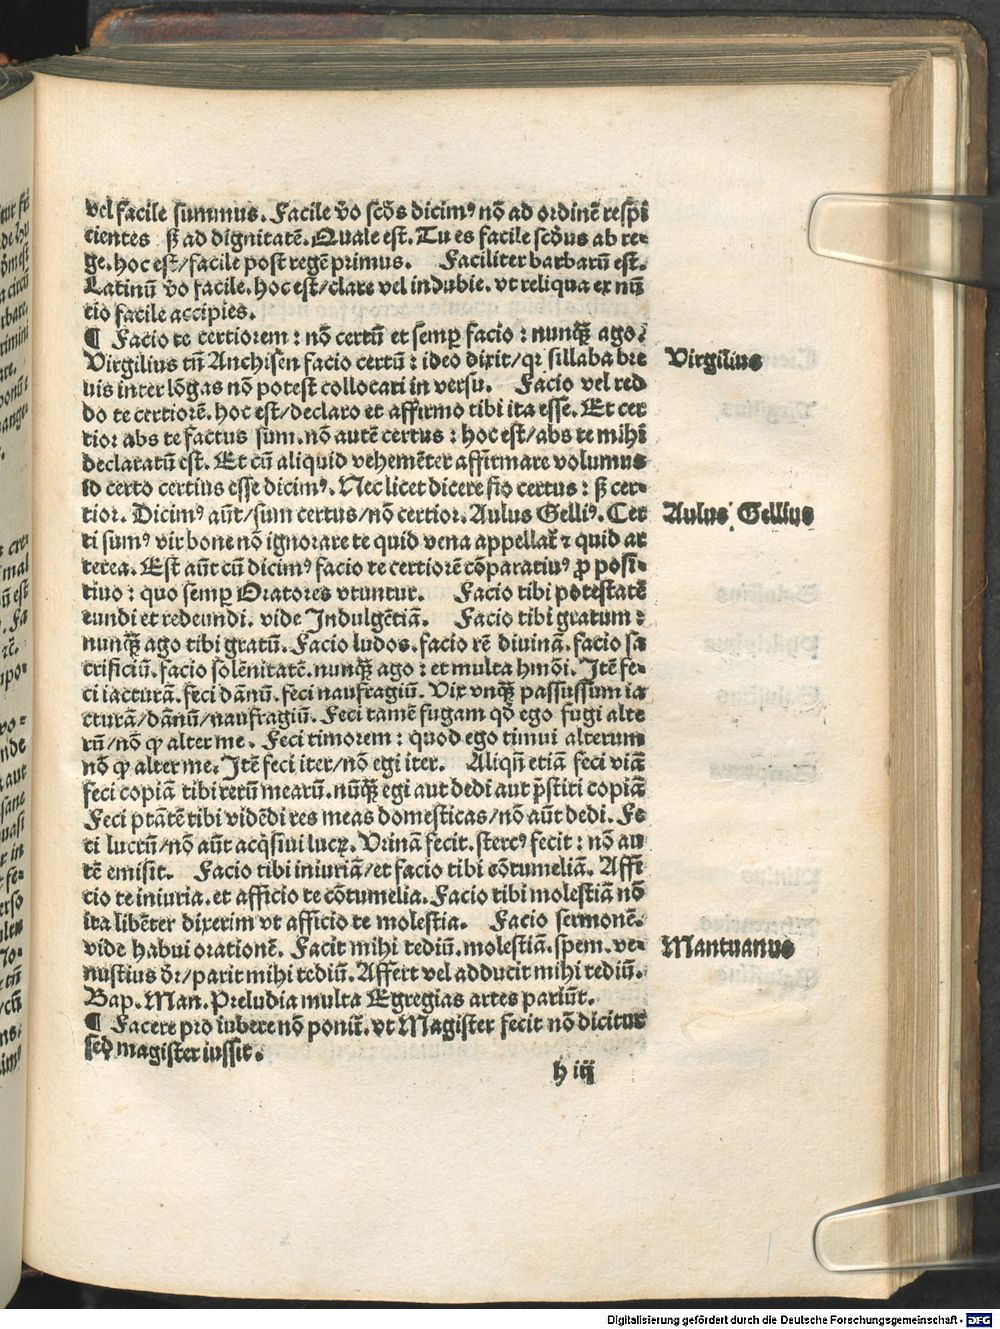 vel facile summus. Facile v̄o scd̄s dicimꝰ nō ad ordinē respi
cientes sꝫ ad dignitatē. Quale est. Tu es facile scd̄us ab re-
ge. hoc est/facile post regē primus. Faciliter barbarū est.
Latinū v̄o facile. hoc est/clare vel indubie. vt reliqua ex nū
tio facile accipies.
¶ Facio te certiorem: nō certū et semꝑ facio: nunqꝫ ago.
Virgilius tn̄ Anchisen facio certū: ideo dixit/qꝛ sillaba bre
uis inter lōgas nō potest collocari in versu. Facio vel red
do te certiorē. hoc est/declaro et affirmo tibi ita esse. Et cer
tior abs te factus sum. nō autē certus: hoc est/abs te mihi
declaratū est. Et cū aliquid vehemēter affirmare volumus
id certo certius esse dicimꝰ. Nec licet dicere fio certus: sꝫ cer-
tior. Dicimꝰ aūt/sum certus/nō certior. Aulus Gelliꝰ. Cer
ti sumꝰ vir bone nō ignorare te quid vena appellat̄ ⁊ quid ar
terea. Est aūt cū dicimꝰ facio te certiorē cōparatiuꝰ ꝓ posi-
tiuo: quo semꝑ Oratores vtuntur. Facio tibi potestatē
eundi et redeundi. vide Indulgētiā. Facio tibi gratum:
nunqꝫ ago tibi gratū. Facio ludos. facio rē diuinā. facio sa
crificiū. facio solēnitatē. nunqꝫ ago: et multa hmōi. Itē fe-
ci iacturā. feci dānū. feci naufragiū. Vix vnqꝫ passus sum ia
cturā/dānū/naufragiū. Feci tamē fugam qd̄ ego fugi alte
rū/nō ꝙ alter me. Feci timorem: quod ego timui alterum
nō ꝙ alter me. Itē feci iter/nō egi iter. Aliqn̄ etiā feci viā
feci copiā tibi rerū mearū. nūqꝫ egi aut dedi aut p̄stiti copiā
Feci ptātē tibi vidēdi res meas domesticas/nō aūt dedi. Fe
ci lucrū/nō aūt acq̄siui lucꝝ. Vrinā fecit. stercꝰ fecit: nō au
tē emisit. Facio tibi iniuriā/et facio tibi cōtumeliā. Affi
cio te iniuria. et afficio te cōtumelia. Facio tibi molestiā nō
ita libēter dixerim vt afficio te molestia. Facio sermonē.
vide habui orationē. Facit mihi tediū. molestiā. spem. ve-
nustius dr̄/parit mihi tediū. Affert vel adducit mihi tediū.
Bap. Man. Preludia multa Egregias artes pariūt.
¶ Facere pro iubere nō ponit̄. vt Magister fecit nō dicitur
sed magister iussit.
h iij
Virgilius
Aulus Gellius
Mantuanus
Digitalisierung gefördert durch die Deutsche Forschungsgemeinschaft - DFG